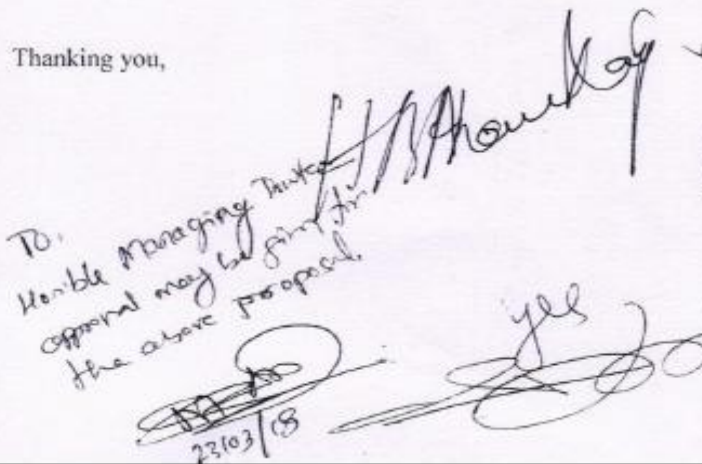 Thanking you,
To.
Hon'ble Managing Trustee
approval may be given for
the above proposal.
yes
23/03/18